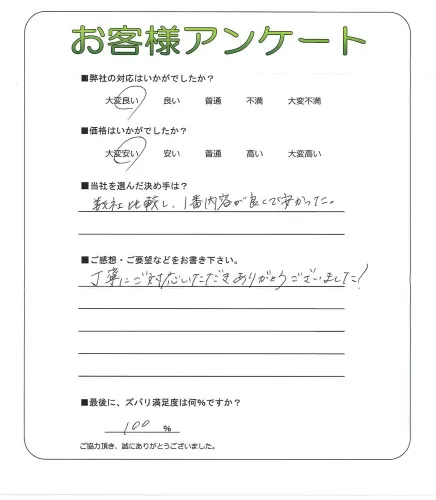 お客様アンケート
■弊社の対応はいかがでしたか？
大変良い 良い 普通 不満 大変不満
■価格はいかがでしたか？
大変安い 安い 普通 高い 大変高い
■当社を選んだ決め手は？
数社比較し、1番内容が良くて安かった。
■ご感想・ご要望などをお書き下さい。
丁寧にご対応いただきありがとうございました！
■最後に、ズバリ満足度は何％ですか？
100 ％
ご協力頂き、誠にありがとうございました。